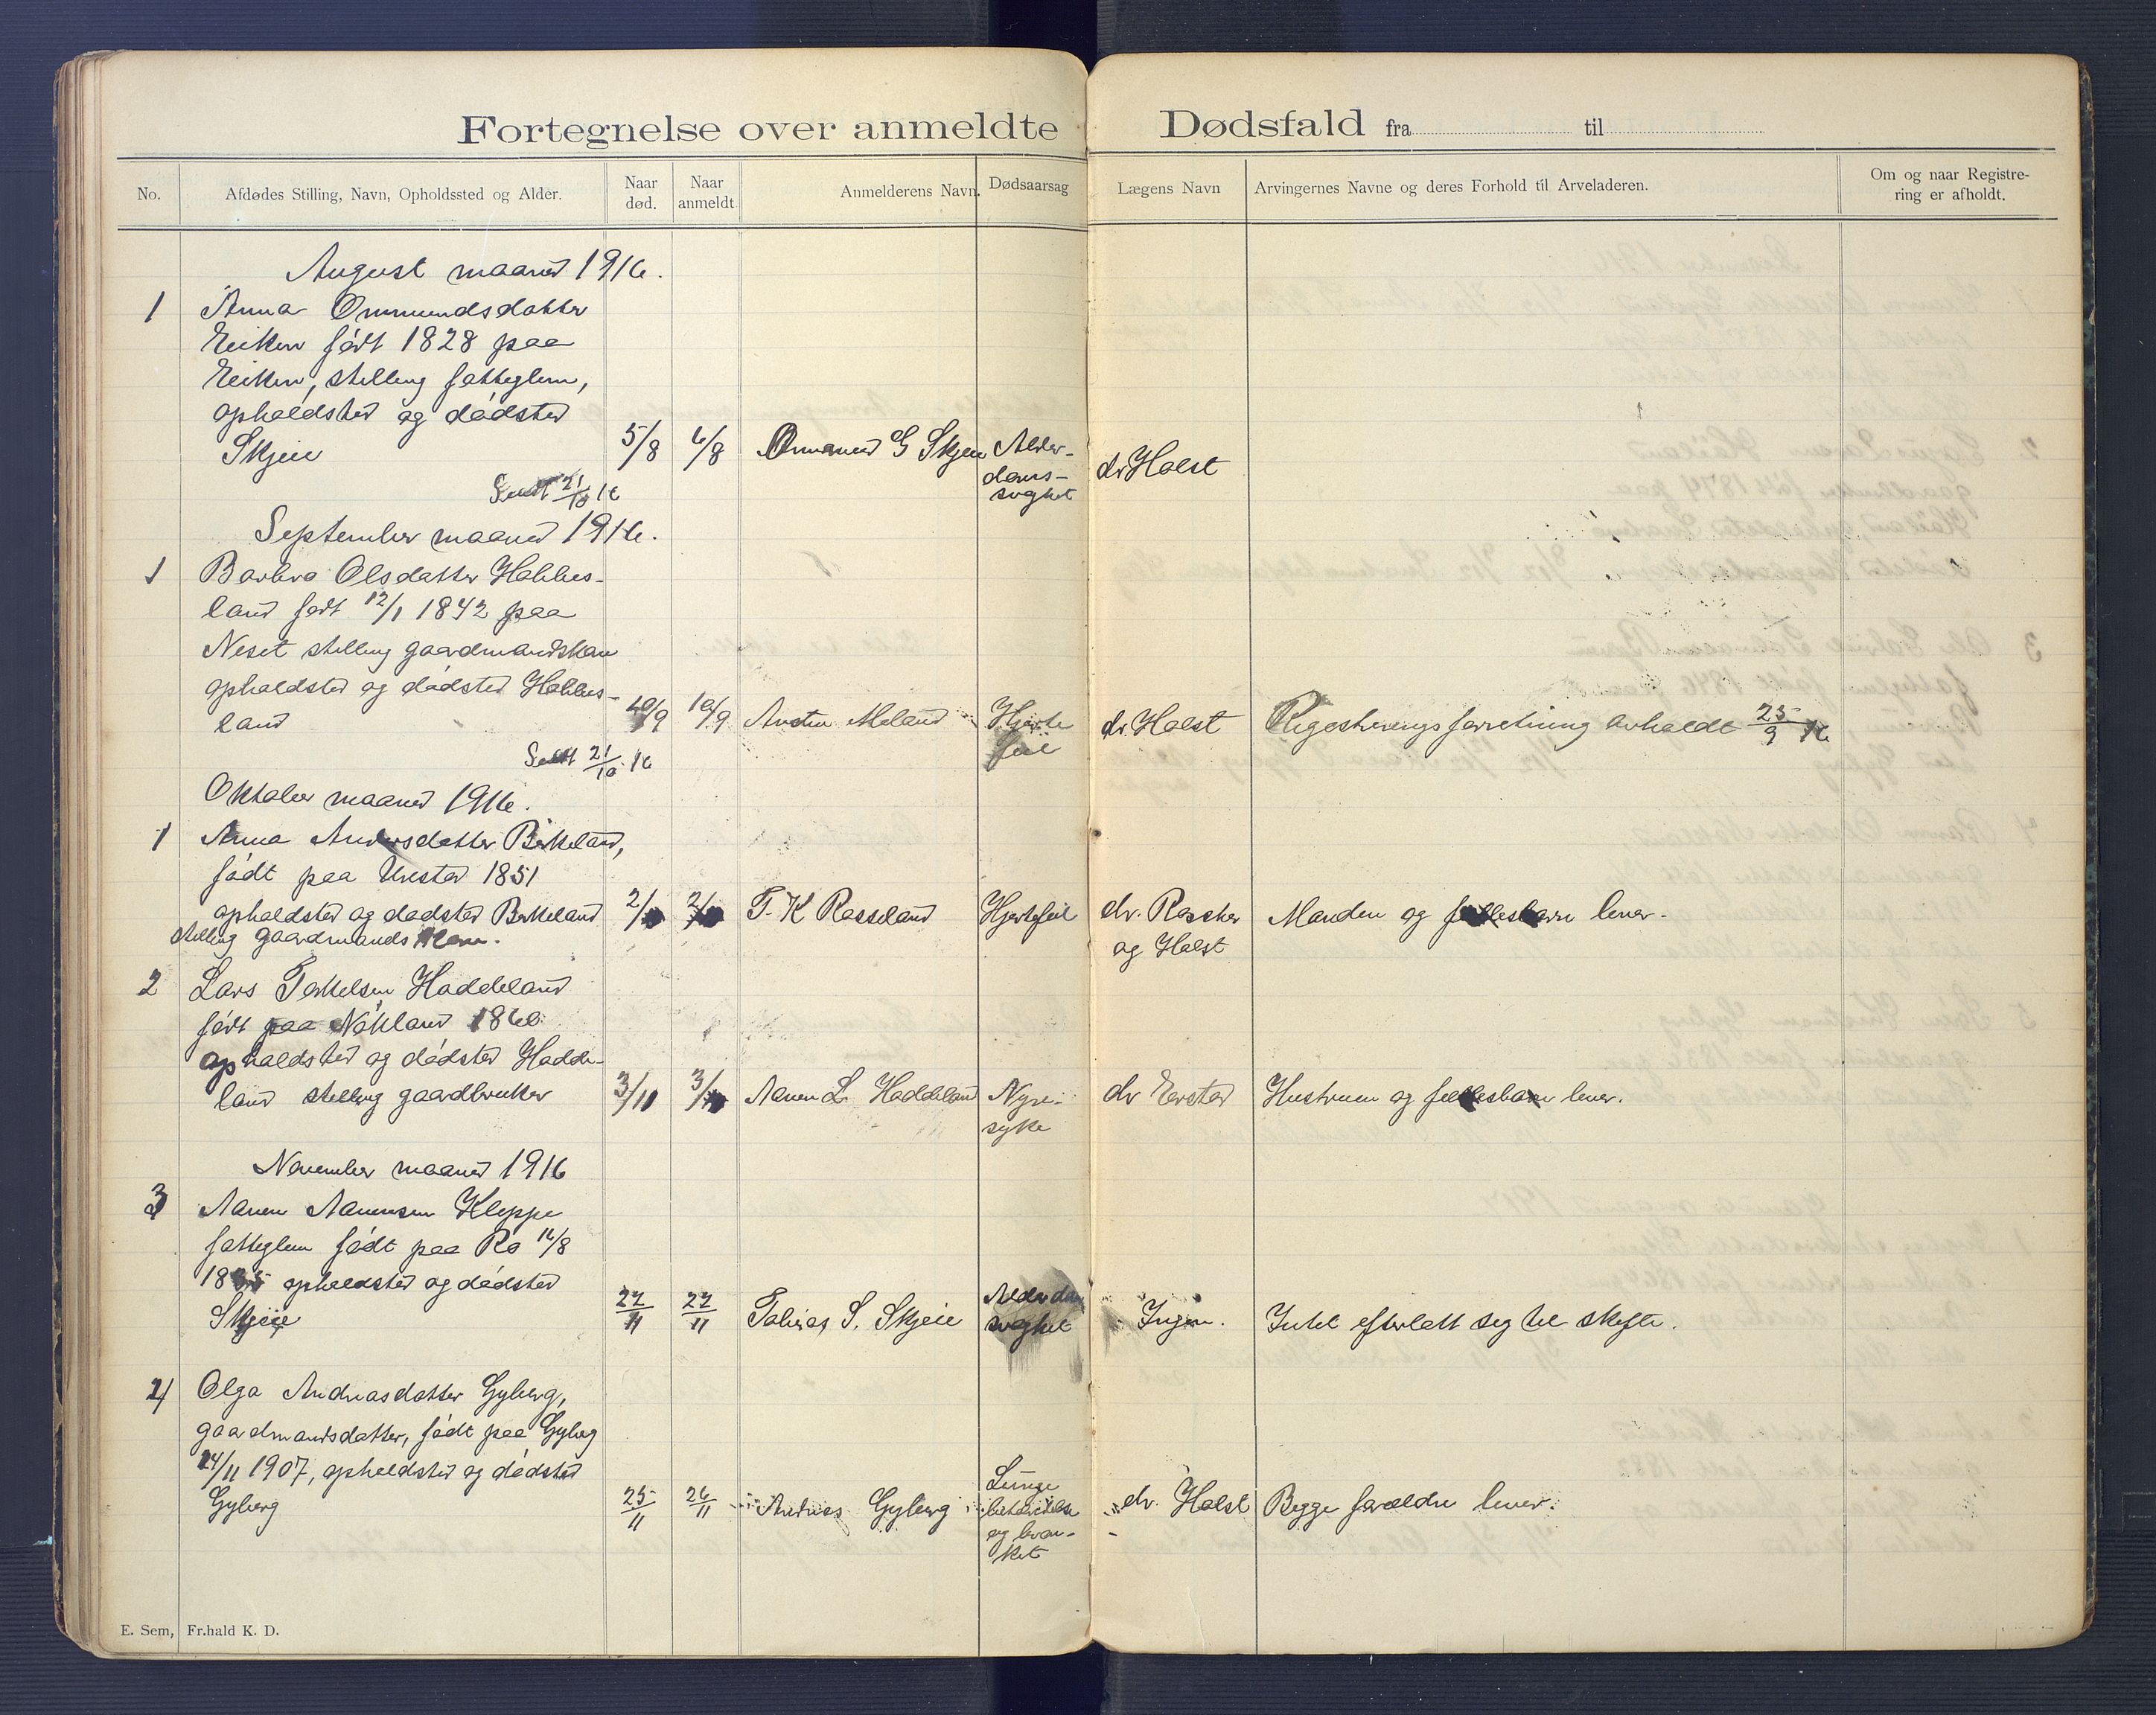 Fortegnelse over anmeldte Dødsfald fra til
No.
Afdødes Stilling, Navn, Opholdssted og Alder.
Naar død.
Naar anmeldt
Anmelderens Navn.
Dødsaarsag
Lægens Navn
Arvingernes Navne og deres Forhold til Arveladeren.
Om og naar Registre-
ring er afholdt.
August maaned 1916.
1 Anna Ommundsdatter
Eiken født 1828 paa
Eiken, stilling fatteglem,
opholdsted og dødsted
Skjeie 5/8 6/8 Ommund G Skjeie Alder-
doms-
svaghet
dr Holst
Sendt 21/10 16
September maaned 1916.
1 Barbro Olsdatter Hobbes-
land født 12/1 1842 paa
Neset stilling gaardmandskone
opholdsted og dødsted Hobbes-
land 10/9 10/9 Arsten Meland Hjerte
feil
dr. Holst Regestreringsforretning avholdt 25/9 16
Sendt 21/10 16
Oktober maaned 1916.
1 Anna Andersdatter Birkeland,
født paa Urestad 1851
opholdsted og dødsted Birkeland 2/ 2/ T. K Rosseland Hjertefeil dr. Roscher Manden og fellesbarn lever.
stilling gaardmands kone.
og Holst
2 Lars Terkelsen Haddeland
født paa Nökland 1860
opholdsted og dødsted Hadde-
land stilling gaardbruker 3/11 3/ Aanen L. Haddeland Nyre-
syke
dr Eersted Hustruen og fellesbarn lever.
November maaned 1916
3 Aanen Aanensen Kleppe
fatteglem født paa Ro 16/8
1835 opholdsted og dødsted
Skjeie 22/11 22/11 Tobias S. Skjeie Alderdoms
svaghet
Ingen. Intet efterlatt seg til skifte.
4 Olga Andreasdatter Gyberg,
gaardmandsdatter, født paa Gyberg
14/11 1907, opholdsted og dødsted
Gyberg 25/11 26/11 Andreas Gyberg Lunge
betændelse
og bron-
kit
dr. Holst Begge forældre lever.
E. Sem, Fr.hald K. D.